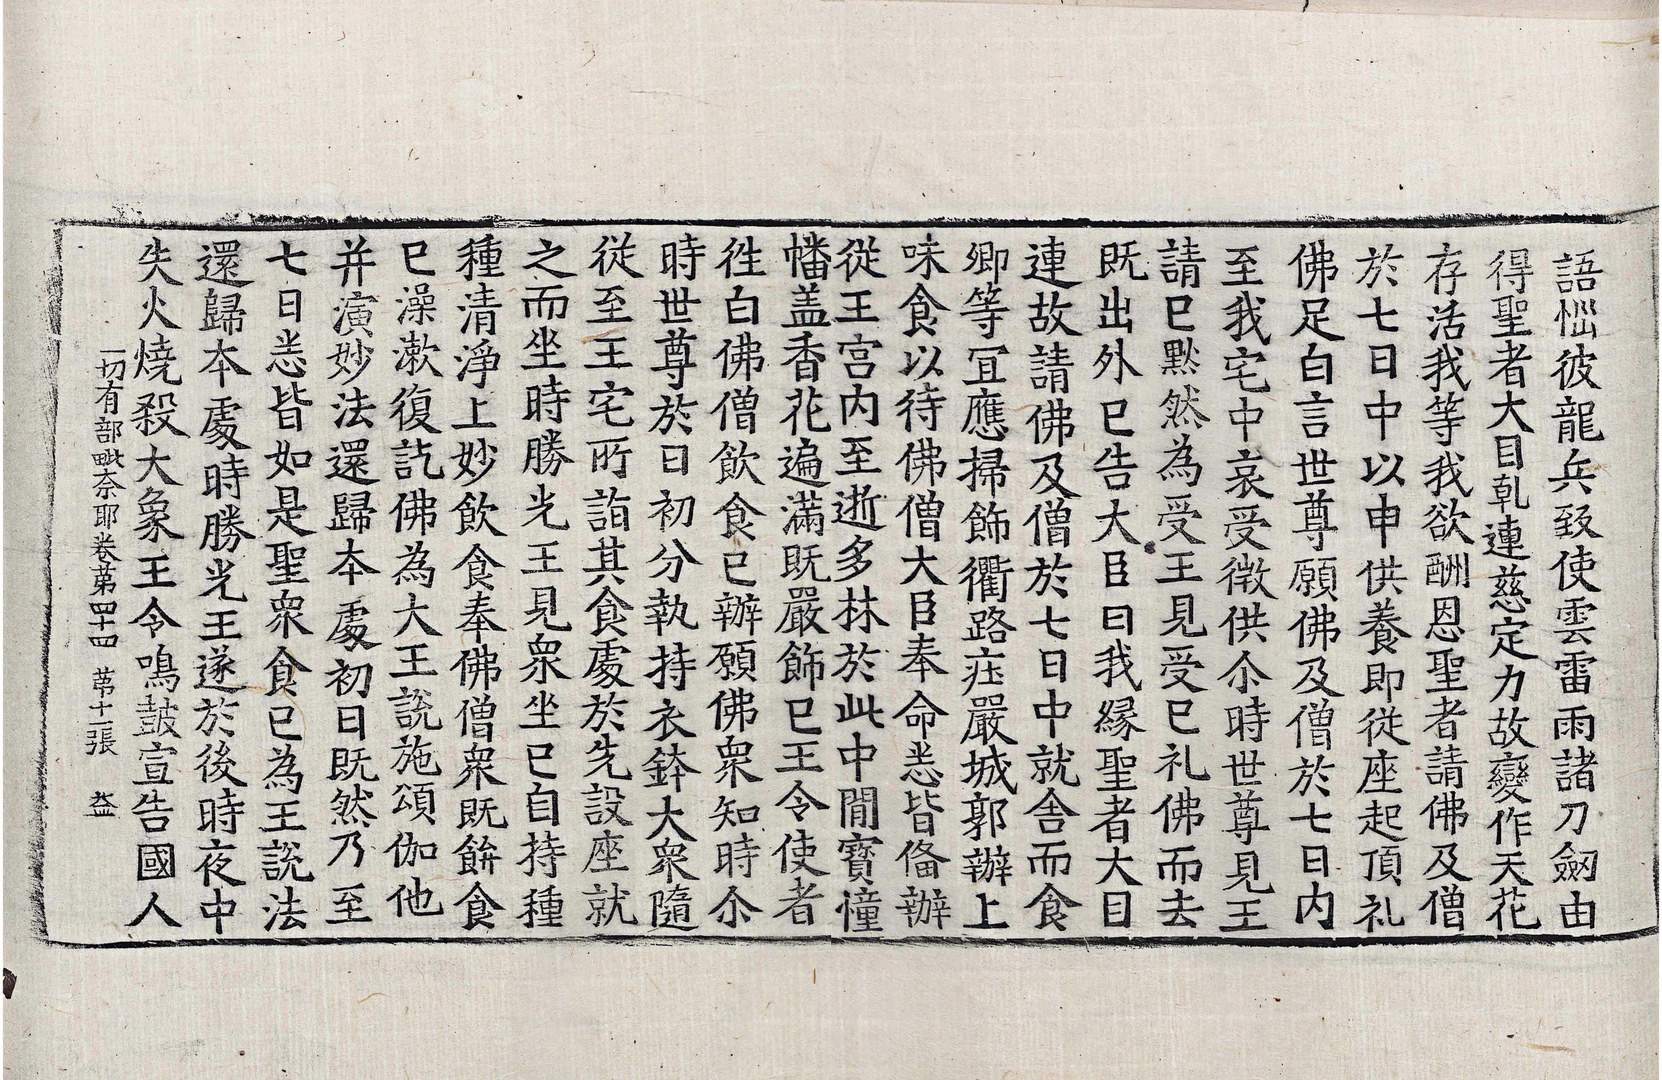 語惱彼龍兵致使雲雷雨諸刀劒由
得聖者大目乹連慈定力故變作天花
存活我等我欲酬恩聖者請佛及僧
於七日中以申供養即從座起頂礼
佛足白言世尊願佛及僧於七日内
至我宅中哀受微供尒時世尊見王
請已黙然為受王見受已礼佛而去
既出外已告大臣曰我縁聖者大目
連故請佛及僧於七日中就舍而食
卿等冝應掃飾衢路庄嚴城郭辦上
味食以待佛僧大臣奉命悉皆俻辦
從王宫内至逝多林於此中閒寳憧
幡盖香花遍滿既嚴飾已王令使者
徃白佛僧飲食已辦願佛衆知時尒
時世尊於日初分執持衣鉢大衆隨
從至王宅所詣其食處於先設座就
之而坐時勝光王見衆坐已自持種
種清淨上妙飲食奉佛僧衆既餅食
已澡漱復訖佛為大王説施頌伽他
并演妙法還歸本處初日既然乃至
七日悉皆如是聖衆食已為王説法
還歸本處時勝光王遂於後時夜中
失火燒殺大象王令鳴皷宣告國人
一切有部毗奈耶卷苐四十四 苐十一張 益